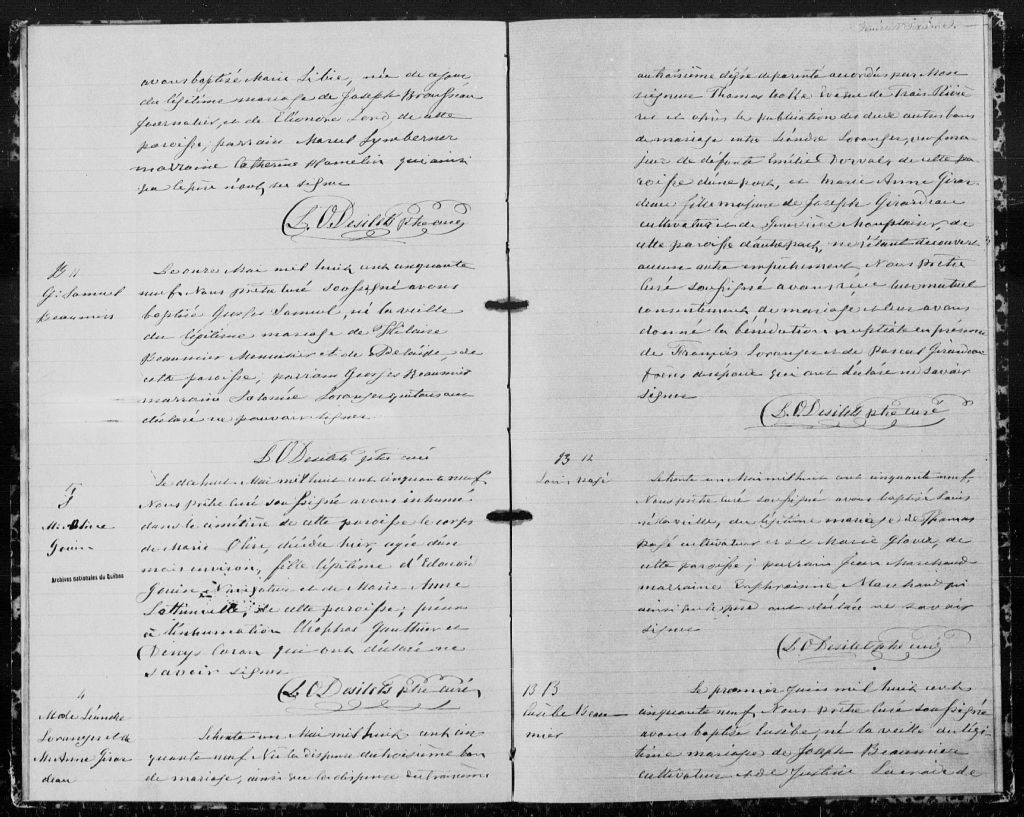 avons baptisé Marie Libie, née de ce jour
du légitime mariage de Joseph Brousseau
journalier, et de Eléonore Lord de cette
paroisse; parrain Marcel Lymberner
marraine Catherine Hamelin qui ainsi
que le père n'ont su signer
L. O. Desilets ptre curé
B 11
G. Samuel
Beaumier
Le onze Mai mil huit cent cinquante
neuf. Nous Prêtre curé soussigné avons
baptisé Georges Samuel, né la veille
du légitime mariage de Hilaire
Beaumier Menuisier et de Adelaïde, de
cette paroisse; parrain Georges Beaumier
marraine Loranger qui tous ont
déclaré ne pouvoir signer.
L O Desilets ptre curé
M. Olive
Gouin
Archives nationales du Québec
Le dix huit Mai mil huit cent cinquante neuf.
Nous Prêtre curé soussigné avons inhumé
dans le cimetière de cette paroisse le corps
de Marie Olive, décédée hier, agée d'un
mois environ, fille légitime d'Edouard
Gouin Navigateur et de Marie Anne
de cette paroisse; présens
à l'inhumation Cléophas Gauthier et
Denys Caron qui ont déclaré ne
savoir signer
L. O. Desilets ptre curé
4
M. de Léandre
Loranger et de
M. Anne Girar
deau
Le trente un Mai mil huit cent cin
quante neuf. Vu la dispense du troisième ban
de mariage, ainsi que la dispense du troisième
au troisième dégré de parenté accordées par Mon
seigneur Thomas Cooke Evêque de Trois Riviè
res et après la publication des deux autres bans
de mariage entre Léandre Loranger, veuf ma
jeur de défunte Emilie Dorval, de cette pa
roisse d'une part, et Marie Anne Girar
deau fille majeure de Joseph Girardeau
cultivateur et de Geneviève Montplaisir, de
cette paroisse d'autre part, ne s'étant découvert
aucun autre empêchement, Nous Prêtre
curé soussigné avons reçu leur mutuel
consentement de mariage et leur avons
donné la bénédiction nuptiale en présence
de François Loranger et de Pascal Girardeau
père de l'épouse qui ont déclaré ne savoir
signer
L. O. Desilets ptre curé
B 12
Louis Pagé
Le trente un Mai mil huit cent cinquante neuf.
Nous Prêtre curé soussigné avons baptisé Louis
né la veille, du légitime mariage de Thomas
Pagé cultivateur et de Marie Glover, de
cette paroisse; parrain Jean Marchand
marraine Euphrosinne Marchand qui
ainsi que le père ont déclaré ne savoir
signer
L. O Desilets ptre curé
B 13
Eusèbe Beau
mier
Le premier Juin mil huit cent
cinquante neuf. Nous Prêtre curé soussigné
avons baptisé Eusèbe, né la veille du légi
time mariage de Joseph Beaumier
cultivateur et de Justine Lacroix de